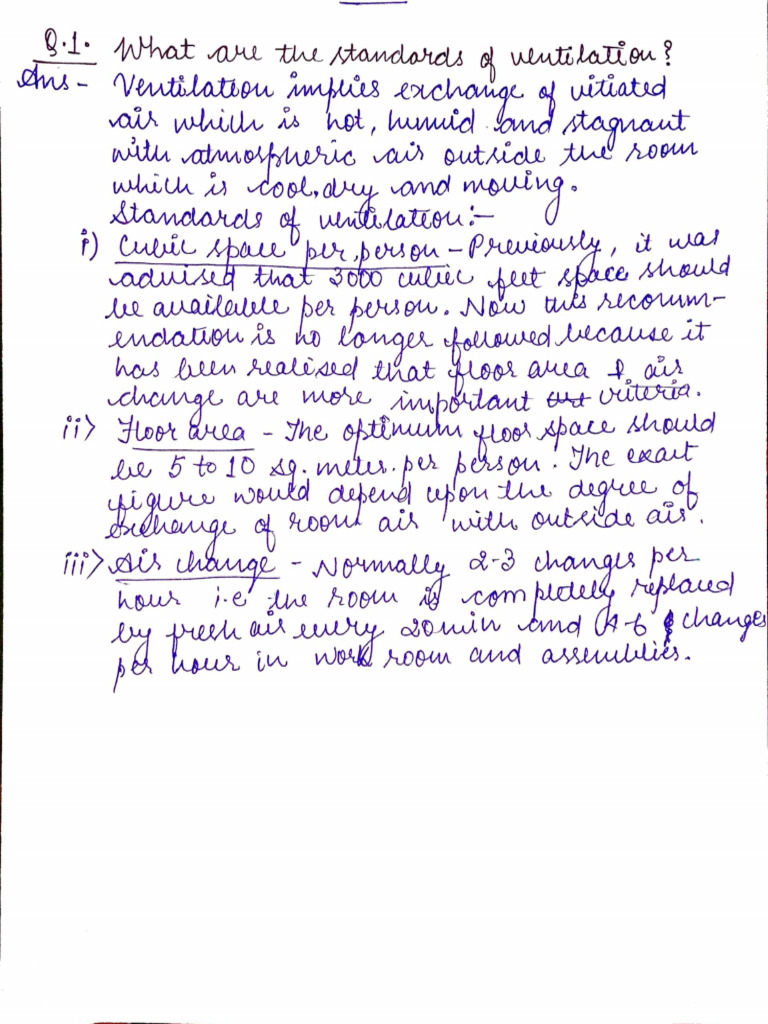 Q.1. What are the standards of ventilation?
Ans - Ventilation implies exchange of vitiated
air which is hot, humid and stagnant
with atmospheric air outside the room
which is cool, dry and moving.
Standards of ventilation:-
i) Cubic space per person - Previously, it was
advised that 3000 cubic feet space should
be available per person. Now this recomm-
endation is no longer followed because it
has been realised that floor area & air
change are more important criteria.
ii> Floor area - The optimum floor space should
be 5 to 10 sq. meter. per person. The exact
figure would depend upon the degree of
exchange of room air with outside air.
iii> Air change - Normally 2-3 changes per
hour i.e the room is completely replaced
by fresh air every 20min and 4-6 changes
per hour in work room and assemblies.